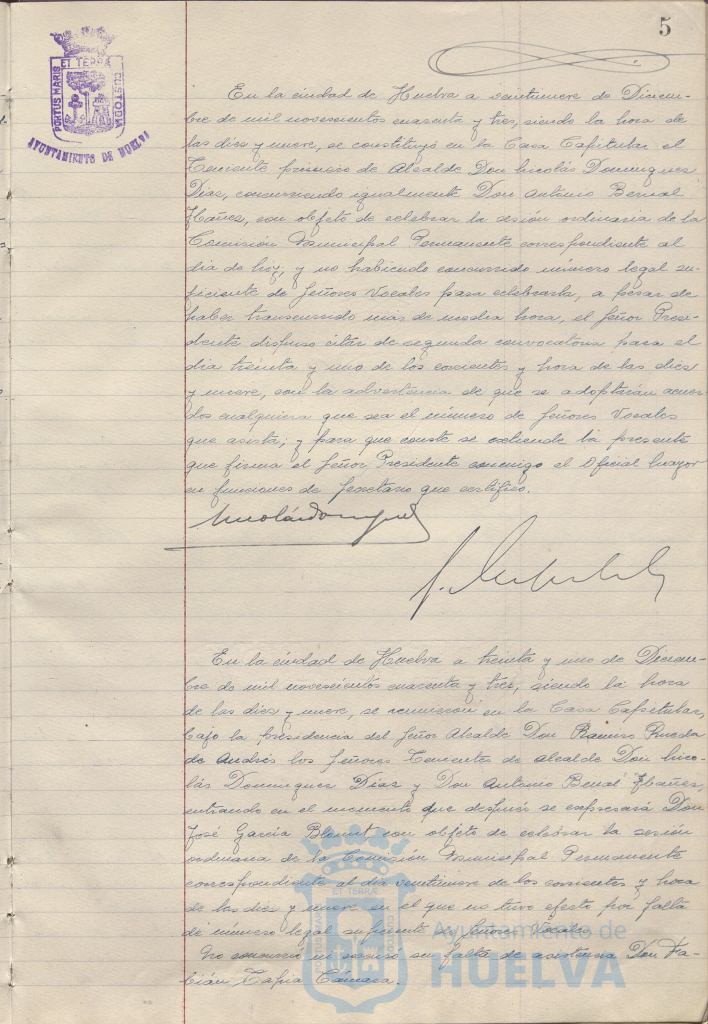 5
ET TERRÆ
PORTUS MARIS
CUSTODIA
AYUNTAMIENTO DE HUELVA
En la ciudad de Huelva a veintinueve de Diciem-
bre de mil novescientos cuarenta y tres, siendo la hora de
las diez y nueve, se constituyó en la Casa Capitular el
Teniente primero de Alcalde Don Nicolás Dominguez
Díaz, concurriendo igualmente Don Antonio Bernal
Ibañez, con objeto de celebrar la sesión ordinaria de la
Comisión Municipal Permanente correspondiente al
dia de hoy, y no habiendo concurrido número legal su-
ficiente de Señores Vocales para celebrarla, a pesar de
haber transcurrido más de media hora, el Señor Presi-
dente dispuso citar de segunda convocatoria para el
dia treinta y uno de los corrientes y hora de las diez
y nueve, con la advertencia de que se adoptarán acuer-
dos cualquiera que sea el número de Señores Vocales
que asista; y para que conste se extiende la presente
que firma el Señor Presidente conmigo el Oficial Mayor
en funciones de Secretario que certifico.
En la ciudad de Huelva a treinta y uno de Diciem-
bre de mil novescientos cuarenta y tres, siendo la hora
de las diez y nueve, se reunieron en la Casa Capitular,
bajo la presidencia del Señor Alcalde Don Ramiro Rueda
de Andrés los Señores Tenientes de Alcalde Don Nico-
lás Dominguez Díaz y Don Antonio Bernal Ibañez,
entrando en el momento que después se expresará Don
José García Blomut con objeto de celebrar la sesión
ordinaria de la Comisión Municipal Permanente
correspondiente al dia veintinueve de los corrientes y hora
de las diez y nueve en el que no tuvo efecto por falta
de número legal suficiente de Señores Vocales.
No concurrió ni excusó su falta de asistencia Don Fa-
bián Tapia Cámara.
ET TERRÆ
PORTUS MARIS
Ayuntamiento de
HUELVA